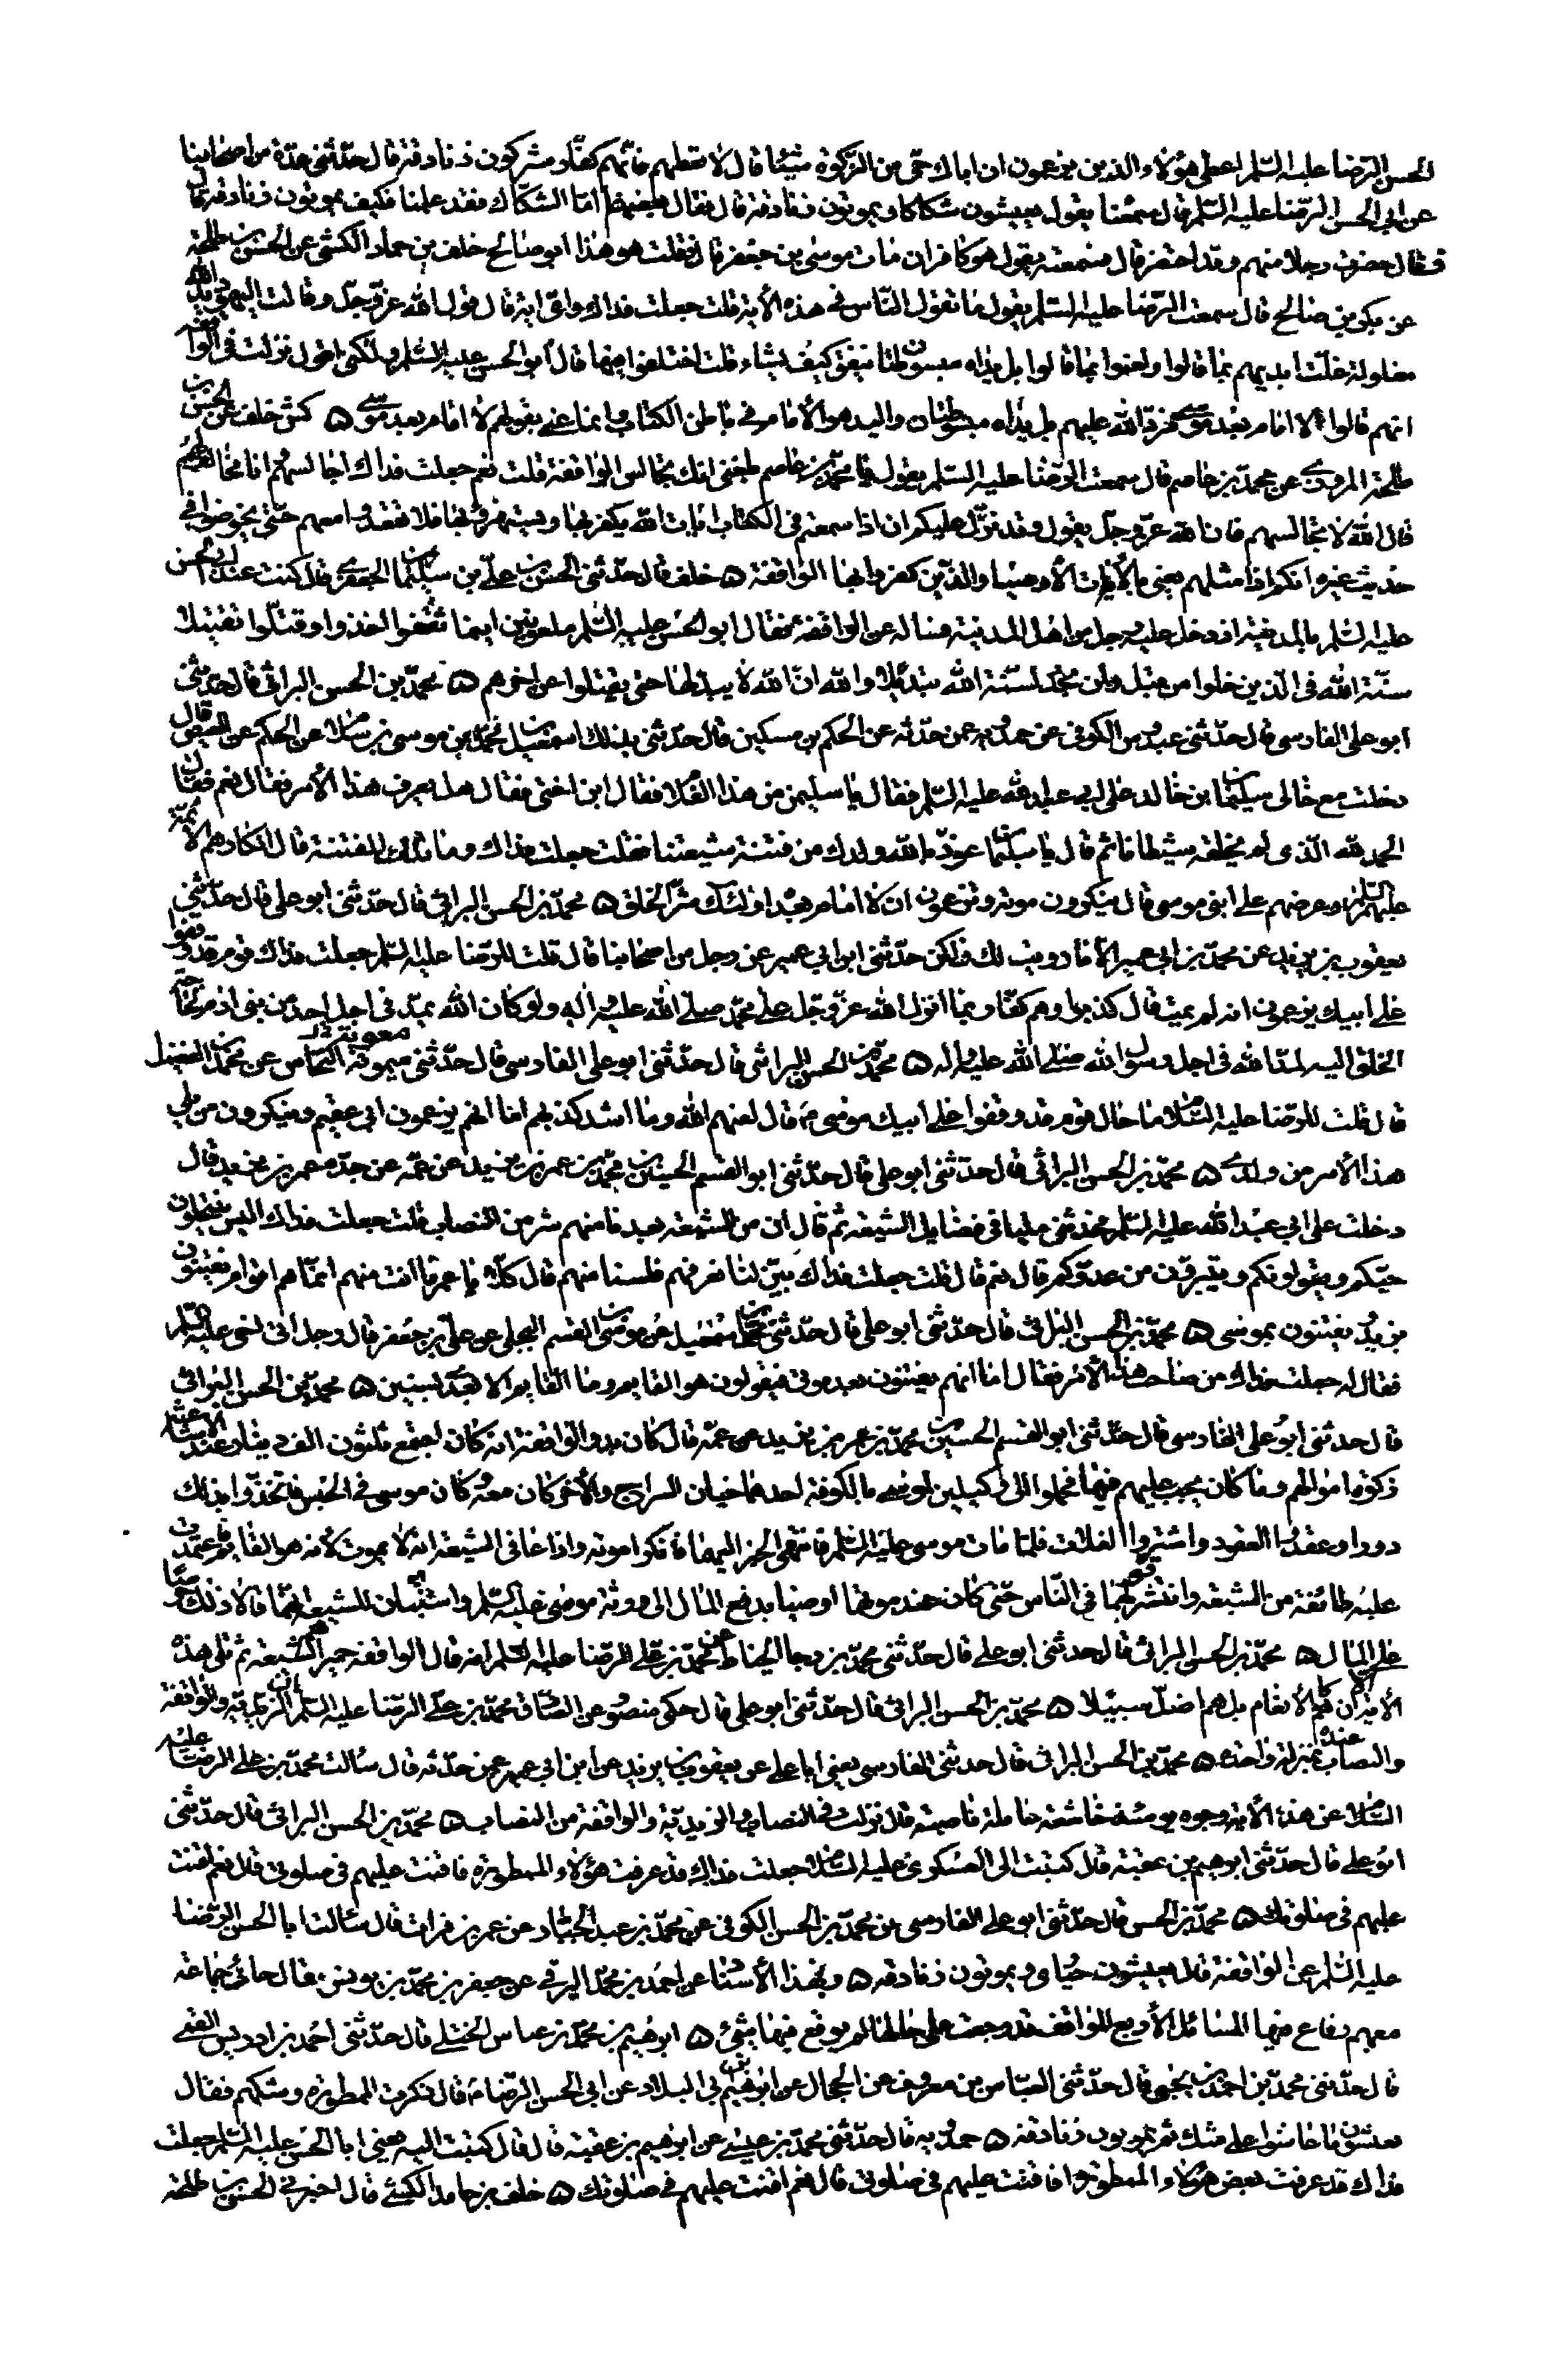 الحسن الرضا عليه السلم اعطى هؤلاء الذين يزعمون ان اباك حى من الزكوة شيئا قال لا تعطهم فانهم كفار مشركون زنادقة قال حدثنى عدة من اصحابنا
عن ابى الحسن الرضا عليه السلم قال سمعنا يقول يعيشون شكاكا ويموتون زنادقة قال فقال بعضهم اما الشكاك فقد علمنا فكيف يموتون زنادقة قال
فقال حضرت رجلا منهم وقد احتضر قال فسمعته يقول هو كافر ان مات موسى بن جعفر قال فقلت هو هذا ابو صالح خلف بن حماد الكشى عن الحسن بن طلحة
عن بكر بن صالح قال سمعت الرضا عليه السلم يقول ما تقول الناس فى هذه الأية قلت جعلت فداك واى اية قال قول الله عز وجل وقالت اليهود يد الله
مغلولة غلت ايديهم بما قالوا ولعنوا بما قالوا بل يداه مبسوطتان ينفق كيف يشاء قلت اختلفوا فيها قال ابو الحسن عليه السلم ولكنى اقول نزلت فى الواقفة
انهم قالوا لا امام بعد موسى فرد الله عليهم بل يداه مبسوطتان واليد هو الأمام فى باطن الكتاب وانما عنى بقولهم لا امام بعد موسى ۵ كش خلف عن الحسن بن
طلحة المروزى عن محمد بن عاصم قال سمعت الرضا عليه السلم يقول يا محمد بن عاصم بلغنى انك تجالس الواقفة قلت نعم جعلت فداك اجالسهم وانا مخالف لهم
قال لا تجالسهم فان الله عز وجل يقول وقد نزل عليكم ان اذا سمعتم فى الكتاب ايات الله يكفر بها ويستهزؤ بها فلا تقعدوا معهم حتى يخوضوا فى
حديث غيره انكم اذا مثلهم يعنى بالأيات الأوصيا والذين كفروا بها الواقفة ۵ خلف قال حدثنى الحسن بن على بن سليمان الجعفرى قال كنت عند ابى الحسن
عليه السلم بالمدينة اذ دخل عليه رجل من اهل المدينة فساله عن الواقفة فقال ابو الحسن عليه السلم ملعونين اينما ثقفوا اخذوا وقتلوا تقتيلا
سنة الله فى الذين خلوا من قبل ولن تجد لسنة الله تبديلا والله ان الله لا يبدلها حتى يقتلوا عن اخرهم ۵ محمد بن الحسن البراثى قال حدثنى
ابو على الفارسى قال حدثنى عبدوس الكوفى عن حمدويه عمن حدثه عن الحكم بن مسكين قال حدثنى بذلك اسمعيل بن محمد بن موسى بن سلام عن الحكم عن العيص قال
دخلت مع خالى سليمان بن خالد على ابى عبد الله عليه السلم فقال يا سليمن من هذا الغلام فقال ابن اختى فقال هل يعرف هذا الأمر فقال نعم فقال
الحمد لله الذى لم يخلقه شيطانا ثم قال يا سليمان عوذ بالله ولدك من فتنة شيعتنا فقلت جعلت فداك وما تلك الفتنة قال انكارهم الأئمة
عليهم السلم ووقوفهم على ابنى موسى قال ينكرون موته ويزعمون ان لا امام بعده اولئك شر الخلق ۵ محمد بن الحسن البراثى قال حدثنى ابو على قال حدثنى
يعقوب بن يزيد عن محمد بن ابى عمير الا ما رويت لك ولكن حدثنى ابن ابى عمير عن رجل من اصحابنا قال قلت للرضا عليه السلم جعلت فداك قوم قد وقفوا
على ابيك يزعمون انه لم يمت قال كذبوا وهم كفار بما انزل الله عز وجل على محمد صلى الله عليه واله ولو كان الله يمد فى اجل احد من بنى ادم لحاجة
الخلق اليه لمد الله فى اجل رسول الله صلى الله عليه واله ۵ محمد بن الحسن البراثى قال حدثنى ابو على الفارسى قال حدثنى ميمون النحاس عن محمد بن الفضيل
قال قلت للرضا عليه السلام ما حال قوم قد وقفوا على ابيك موسى م قال لعنهم الله وما اشد كذبهم اما انهم يزعمون انى عقيم وينكرون من يلى
هذا الأمر من ولدى ۵ محمد بن الحسن البراثى قال حدثنى ابو على قال حدثنى ابو القسم الحسين بن محمد بن عمر بن يزيد عن عمه عن جده عمر بن يزيد قال
دخلت على ابى عبد الله عليه السلم فحدثنى مليا فى فضايل الشيعة ثم قال ان من الشيعة بعدنا منهم شر من النصاب قلت جعلت فداك اليس ينتحلون
حبكم ويتولونكم ويتبرؤن من عدوكم قال نعم قال قلت جعلت فداك بين لنا نعرفهم فلسنا منهم قال كلا يا عمر ما انت منهم انما هم قوم يفتنون
بزيد يفتنون بموسى ۵ محمد بن الحسن البراثى قال حدثنى ابو على قال حدثنى محمد بن اسمعيل عن موسى بن القسم البجلى عن على بن جعفر قال رجل اتى اخى عليه السلم
فقال له جعلت فداك من صاحب هذا الأمر فقال اما انهم يفتنون بعد موتى فيقولون هو القايم وما القايم الا بعدى بسنين ۵ محمد بن الحسن البراثى
قال حدثنى ابو على الفارسى قال حدثنى ابو القسم الحسين بن محمد بن عمر بن يزيد عن عمه قال كان بدو الواقفة انه كان اجتمع ثلثون الف دينار عند الأشاعثة
زكوة اموالهم وما كان يجب عليهم فيها فحملوا الى وكيلين لموسى بالكوفة احدهما حيان السراج والأخر كان معه وكان موسى فى الحبس فاتخذوا بذلك
دورا وعقدوا العقود واشتروا الغلات فلما مات موسى عليه السلم فانتهى الخبر اليهما فانكرا موته واذاعا فى الشيعة انه لا يموت لأنه هو القايم فاعتمدت
عليه طائفة من الشيعة وانتشر قولهما فى الناس حتى كان عند موتهما اوصيا بدفع المال الى ورثة موسى عليه السلم واستبان للشيعة انهما قالا ذلك حرصا
على المال ۵ محمد بن الحسن البراثى قال حدثنى ابو على قال حدثنى محمد بن رجا الحناط عن محمد بن على الرضا عليه السلم انه قال الواقفة هم حمير الشيعة ثم تلى هذه
الأية ان هم الا كالأنعام بل هم اضل سبيلا ۵ محمد بن الحسن البراثى قال حدثنى ابو على قال حكى منصور عن الصادق محمد بن على الرضا عليه السلم ان الزيدية والواقفة
والنصاب عنده بمنزلة واحدة ۵ محمد بن الحسن البراثى قال حدثنى الفارسى يعنى ابا على عن يعقوب بن يزيد عن ابن ابى عمير عمن حدثه قال سالت محمد بن على الرضا عليه
السلام عن هذه الأية وجوه يومئذ خاشعة عاملة ناصبة قال نزلت فى النصاب والزيدية والواقفة من النصاب ۵ محمد بن الحسن البراثى قال حدثنى
ابو على قال حدثنى ابرهيم بن عقبة قال كتبت الى العسكرى عليه السلام جعلت فداك قد عرفت هؤلاء الممطورة فاقنت عليهم فى صلوتى قال نعم اقنت
عليهم فى صلوتك ۵ محمد بن الحسن قال حدثنى ابو على الفارسى عن محمد بن الحسن الكوفى عن محمد بن عبد الجبار عن عمر بن فرات قال سالت ابا الحسن الرضا
عليه السلم عن الواقفة قال يعيشون حيارى ويموتون زنادقه ۵ وبهذا الأسناد عن احمد بن محمد البرقى عن جعفر بن محمد بن يونس قال جائنى جماعة
معهم رقاع فيها المسائل الأ رقعة الواقف قد رجعت على حالها لم يوقع فيها شىء ۵ ابرهيم بن محمد بن عباس الختلى قال حدثنى احمد بن ادريس القمى
قال حدثنى محمد بن احمد بن يحيى قال حدثنى العباس بن معروف عن الحجال عن ابرهيم بن ابى البلاد عن ابى الحسن الرضا م قال ذكرت الممطورة وشكهم فقال
يعيشون ما عاشوا على شك ثم يموتون زنادقه ۵ حمدويه قال حدثنى محمد بن عيسى عن ابرهيم بن عقبة قال كتبت اليه يعنى ابا الحسن عليه السلم جعلت
فداك قد عرفت بعض هؤلاء الممطورة افاقنت عليهم فى صلوتى قال نعم اقنت عليهم فى صلوتك ۵ خلف بن حامد الكشى قال اخبرنى الحسن بن طلحة